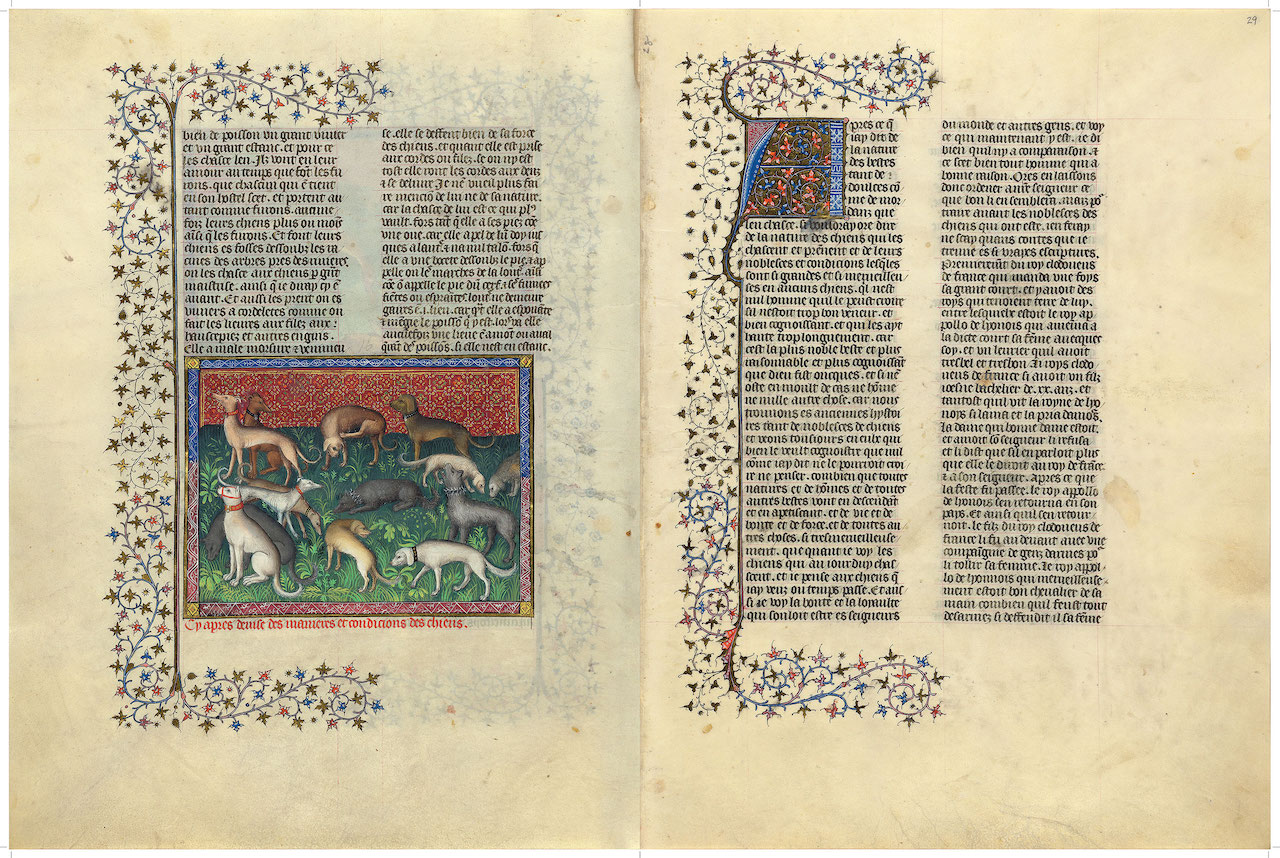 bien de poisson un grant vivier
et un grant estanc. et pour ce
les chasce len. Ilz vont en leur
amour au temps que font les fu
rons. que chascun qui en tient
en son hostel scet. et portent au
tant comme furons. aucune
foiz leurs chiens plus ou moīs
aīsi q̄ les furons. Et font leurs
chiens es fosses dessoubz les ra
cines des arbres pres des rivieres
on les chasce aux chiens p grāt
maistrise. ainsi que ie diray cy ē
avant. Et aussi les prent on es
viviers a cordeletes comme on
fait les lievres aux filez aux
haussepiez et autres engins.
Elle a male morsure et venimeu
se. elle se deffent bien de sa force
des chiens. et quant elle est prise
aux cordes ou filez. se on ny est
tost elle ront les cordes aux denz
et se delivre. Je nē vueil plus fai
re mencion de lui ne de sa nature.
car la chasce de lui est ce qui pl
vault. fors tāt q̄ elle a ses piez cōe
une oue. car elle a pel
ques a lautre. a nul talon. fors q̄
elle a une
pelle on les marches de la loutre. aīsi
cōe on appelle le pie du cerf.
loutre ne demeure
gaires ē .i. lieu. car qāt elle a
le poisson q̄ y est. lors va elle
une lieue ē amont ou aval
querāt des poissōs. si elle nest en estanc.
Cy apres devise des manieres et condicions des chiens.
29
Apres ce q̄
iay dit de
la nature
des bestes
tant de
doulces cō
me de mor
danz que
len chasce.
de la nature des chiens qui les
chascent et prēnent et de leurs
noblesces et condicions lesq̄les
sont si grandes et si merveilleu
ses en aucuns chiens. qͥl nest
nul homme qui le peust croire
sil nestoit trop bon veneur. et
bien cognoissant. et qui les ayt
hante trop longuement. car
cest la plus noble beste et plus
raisonnable et plus cognoissāt
que dieu fist oncques. et si nē
oste en moult de cas ne hōme
ne mille autre chose. car nous
trouvons es anciennes hystoi
res tant de noblesces de chiens
et veons tousiours en eulx qui
bien le veult cognoistre que nul
cōme iay dit ne le pourroit croi
re ne penser. combien que toutes
natures et de hōmes et de toutes
autres bestes vont en descendāt
et en apetissant. et de vie et de
bonte et de force. et de toutes au
tres choses. si tresmerveilleuse
ment. que quant ie voy les
chiens qui au iourduy chas
scent. et ie pense aux chiens q̄
iay veuz ou temps passe. Et auss
si ie voy la bonte et la loyaulte
qui souloit estre es seigneurs
du monde et autres gens. et voy
ce qui maintenant y est. ie di
bien quil ny a comparaison.
ce scet bien tout homme qui a
bonne raison. Ores en laissons
donc ordener a nr̄e seigneur ce
que bon li en semblera. mais po
traire avant les noblesces des
chiens qui ont este. ien feray
ne scay quans contes que ie
treuve es si vrayes escriptures.
Premieremāt du roy clodoveus
de france qui manda une foys
sa grant court. et y avoit des
roys qui tenoient terre de luy.
entre lesquielx estoit le roy ap
pollo de lyonois qui amena a
la dicte court sa fēme avecques
soy. et un levrier quil avoit
tresbel et tresbon. Li roys clodo
veus de france si avoit un filz
iuesne bachelier de .xx. anz. et
tantost quil vit la royne de lyo
noys si lama et la pria damo.
la dame qui bonne dame estoit.
et amoit sō seigneur li refusa
et li dist que sil en parloit plus
que elle le diroit au roy de frāce.
et a son seigneur. Apres ce que
la feste fu passee. le roy appollo
de lyonois sen retourna en son
pays. Et ainsi quil sen retour
noit. le filz du roy clodoveus de
france li fu au devant avec une
compaignie de genz darmes po
li tollir sa femme. le roy appol
lo de lyonnois qui merveilleuse
ment estoit bon chevalier de sa
main combien quil feust tout
desarmez si deffendit il sa fēme